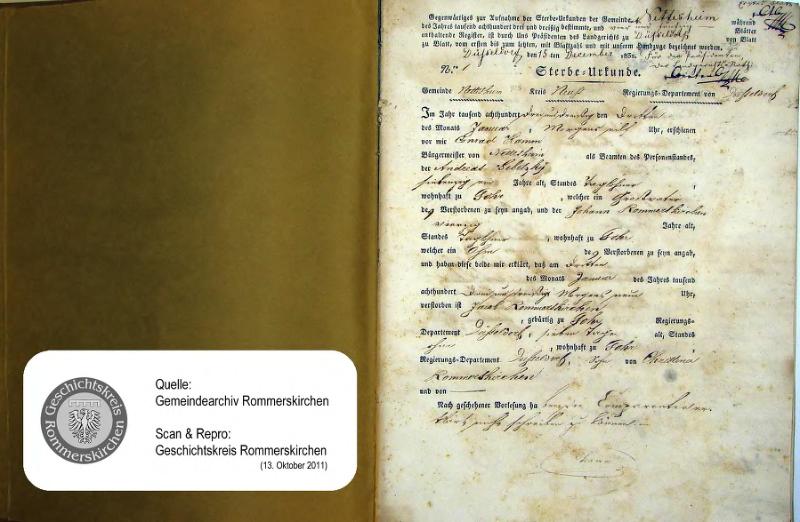 Gegenwärtiges zur Aufnahme der Sterbe-Urkunden der Gemeinde Nettesheim während
des Jahres tausend achthundert drei und dreißig bestimmte, und vier und fünfzig Blätter
enthaltende Register, ist durch Uns Präsidenten des Landgerichts zu Düsseldorf von Blatt
zu Blatt, vom ersten bis zum letzten, mit Blattzahl und mit unserm Handzuge bezeichnet worden.
Düsseldorf den 15 ten December 183
Für den Präsidenten
Nro. 1
Sterbe-Urkunde.
Gemeinde Nettesheim Kreis Neuß Regierungs-Departement von Düsseldorf
Im Jahr tausend achthundert drei und dreißig den Dritten
des Monats Januar, Morgens eilf Uhr, erschienen
vor mir Conrad Hamm
Bürgermeister von Nettesheim als Beamten des Personenstandes,
der Andreas
siebenzig ein Jahre alt, Standes Taglöhner,
wohnhaft zu Gohr, welcher ein Großvater
des Verstorbenen zu seyn angab, und der Johann Rommerskirchen
vierzig Jahre alt,
Standes Taglöhner, wohnhaft zu Gohr
welcher ein Ohm des Verstorbenen zu seyn angab,
und haben diese beide mir erklärt, daß am Dritten
des Monats Januar des Jahres tausend
achthundert drei und dreißig Morgens neun Uhr,
verstorben ist Jacob Rommerskirchen
, gebürtig zu Gohr Regierungs-
Departement Düsseldorf, sieben Tage alt, Standes
ohne, wohnhaft zu Gohr
Regierungs-Departement Düsseldorf, Sohn von Christina
Rommerskirchen
und von
Nach geschehener Vorlesung ha ben die Comparenten er
klärt nicht schreiben zu können.
Hamm
Geschichtskreis
Rommerskirchen
Quelle:
Gemeindearchiv Rommerskirchen
Scan & Repro:
Geschichtskreis Rommerskirchen
(13. Oktober 2011)